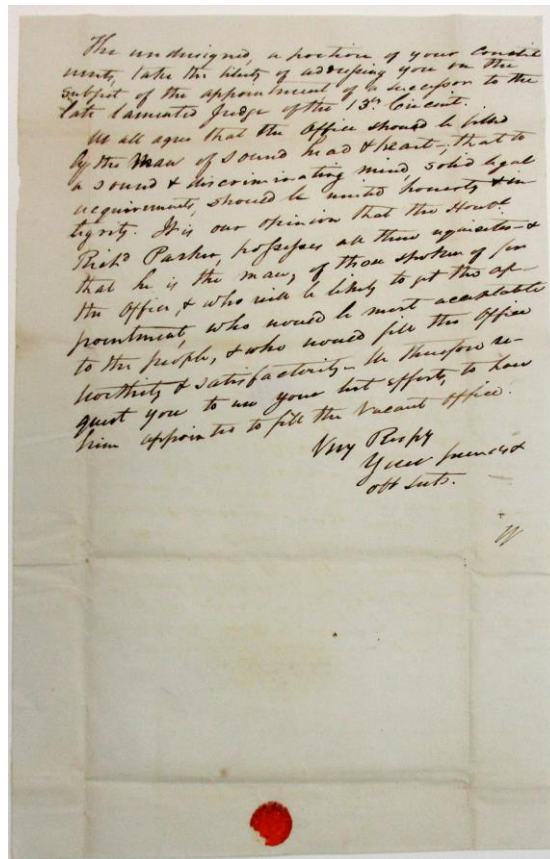 The undersigned, a portion of your Constit
uents, take the liberty of addressing you on the
subject of the appointment of a successor to the
late lamented Judge of the 13th Circuit.
We all agree that the Office should be filled
by the Man of sound head & heart – that to
a sound & discriminating mind, solid legal
acquirements, should be united honesty & in
tegrity. It is our opinion that the Honbl
Richd Parker, possesses all these requisites – &
that he is the man, of those spoken of for
the Office, & who will be likely to get the ap–
pointment, who would be most acceptable
to the people, & who would fill the Office
worthily & satisfactorily – We therefore re–
quest you to use your best efforts, to have
him appointed to fill the vacant office.
Very Respy
Your friends &
obt Svts.